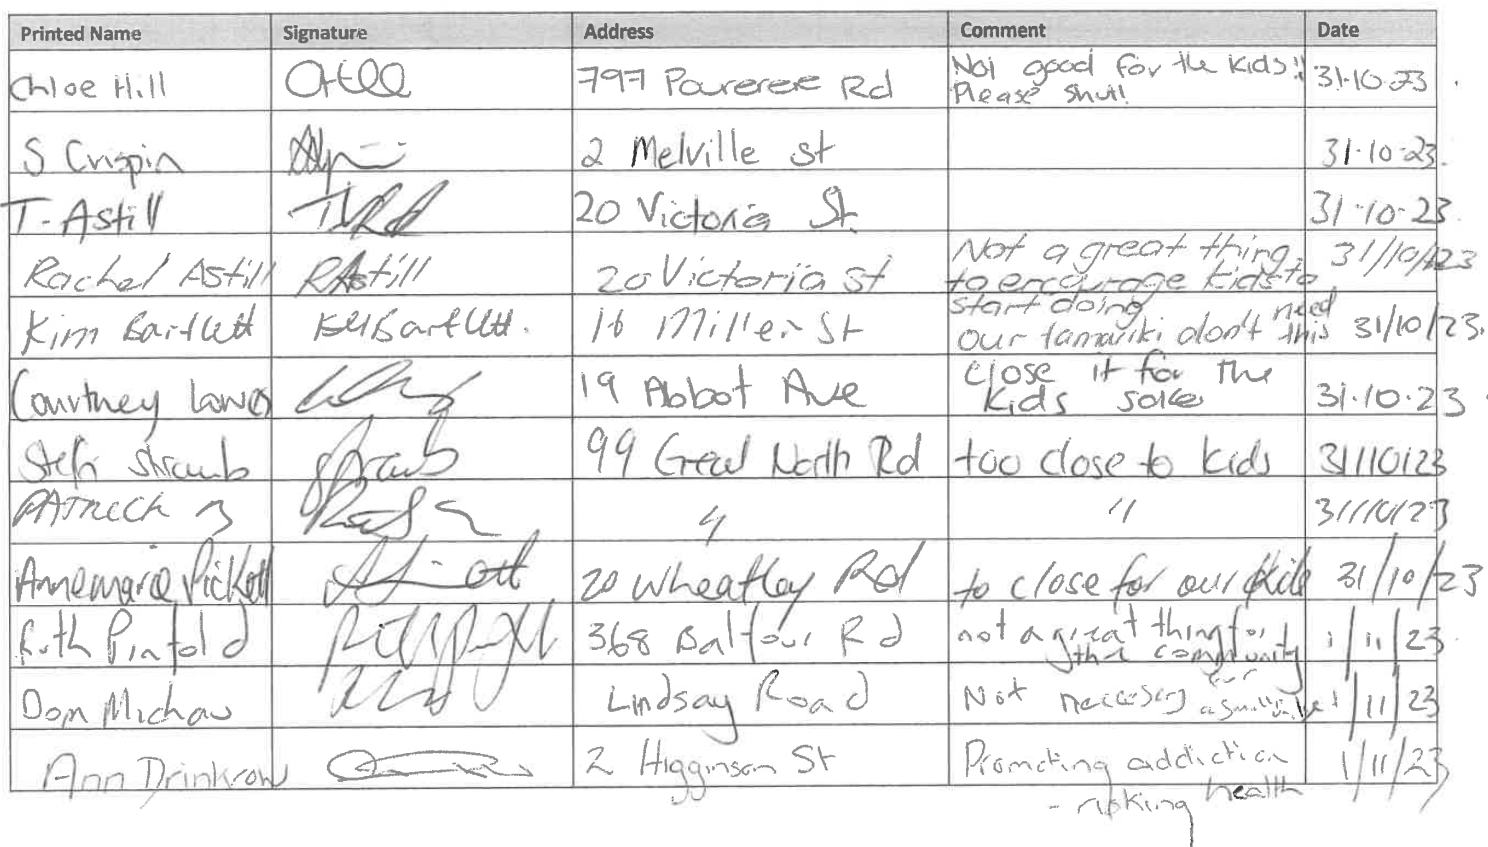 Printed Name Signature Address Comment Date
Chloe Hill 797 Pourerere Rd Not good for the kids!! 31.10.23
Please shut!
S Crispin 2 Melville st 31.10.23.
T. Astill 20 Victoria St. 31.10.23.
Rachel Astill RAstill 20 Victoria st Not a great thing 31/10/23
to encourage kids to
start doing
Kim Bartlett KMBartlett. 16 Miller St our tamariki don't need this 31/10/23.
Courtney 19 Abbot Ave close it for the 31.10.23
kids sake
Steph Straub 99 Great North Rd too close to kids 31/10/23
PATRICK " " 31/10/23
Annemarie Pickett 20 Wheatley Rd to close for our kids 31/10/23
Ruth Pinfold 368 Balfour Rd not a great thing for 1/11/23
the community
Dom Michau Lindsay Road Not for a 1/11/23
Ann Drinkrow 2 Higginson St Promoting addiction 1/11/23
- risking health